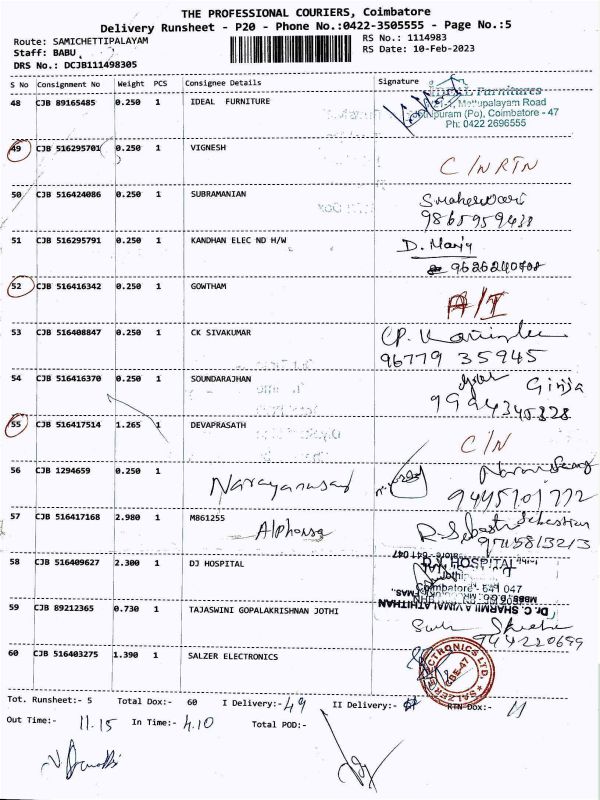 THE PROFESSIONAL COURIERS, Coimbatore
Delivery Runsheet - P20 - Phone No.:0422-3505555 - Page No.:5
Route: SAMICHETTIPALAYAM
RS No.: 1114983
Staff: BABU
RS Date: 10-Feb-2023
DRS No.: DCJB111498305
S No Consignment No Weight PCS Consignee Details Signature
48 CJB 89165485 0.250 1 IDEAL FURNITURE
IDEAL Furnitures
Mettupalayam Road
(Po), Coimbatore - 47
Ph: 0422 2696555
49 CJB 516295701 0.250 1 VIGNESH C/N RTN
50 CJB 516424086 0.250 1 SUBRAMANIAN
9865959438
51 CJB 516295791 0.250 1 KANDHAN ELEC ND H/W D.
52 CJB 516416342 0.250 1 GOWTHAM
53 CJB 516408847 0.250 1 CK SIVAKUMAR CP.
96779 35945
54 CJB 516416370 0.250 1 SOUNDARAJHAN Girija
9994345328
55 CJB 516417514 1.265 1 DEVAPRASATH C/N
56 CJB 1294659 0.250 1
9445701772
57 CJB 516417168 2.980 1 M861255
Alphonsa
9715813213
58 CJB 516409627 2.300 1 DJ HOSPITAL
HOSPITAL
Coimbatore - 641 047
Dr. C. SHARMILA VIMALATHITHAN
59 CJB 89212365 0.730 1 TAJASWINI GOPALAKRISHNAN JOTHI
60 CJB 516403275 1.390 1 SALZER ELECTRONICS
SALZER ELECTRONICS LTD.
CBE-47
Tot. Runsheet:- 5 Total Dox:- 60 I Delivery:- 49 II Delivery:- RTN Dox:- 11
Out Time:- 11.15 In Time:- 4.10 Total POD:-